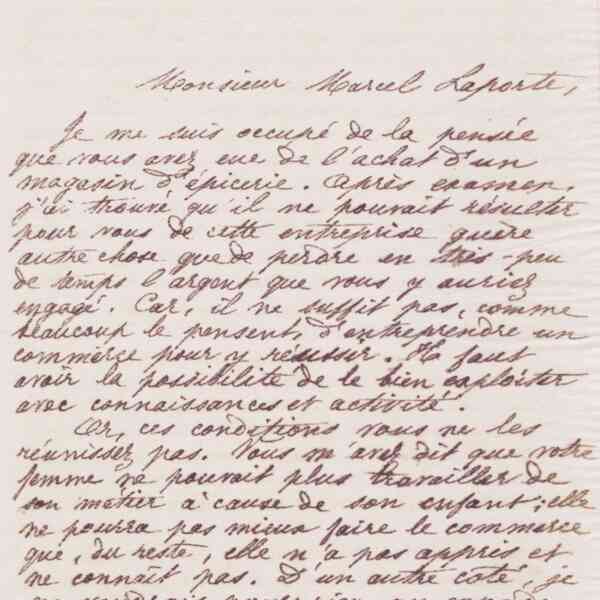 Monsieur Marcel Laporte,
Je me suis occupé de la pensée
que vous avez eue de l'achat d'un
magasin d'épicerie. Après examen,
j'ai trouvé qu'il ne pouvait résulter
pour vous de cette entreprise guère
autre chose que de perdre en très-peu
de temps l'argent que vous y auriez
engagé. Car, il ne suffit pas, comme
beaucoup le pensent, d'entreprendre un
commerce pour y réussir. Il faut
avoir la possibilité de le bien exploiter
avec connaissances et activité.
Or, ces conditions vous ne les
réunissez pas. Vous m'avez dit que votre
femme ne pouvait plus travailler de
son métier à cause de son enfant; elle
ne pourra pas mieux faire le commerce
que, du reste, elle n'a pas appris et
ne connaît pas. D'un autre côté, je